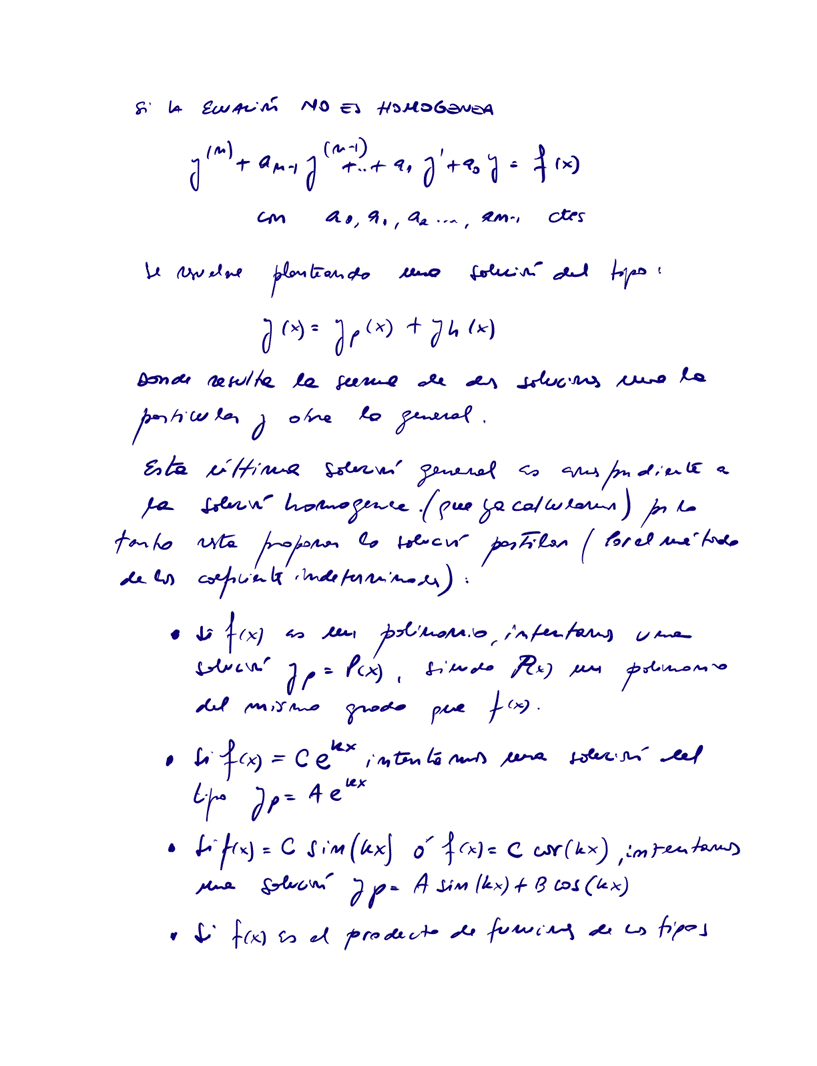 Si LA ECUACIÓN NO ES HOMOGENEA
y^(n) + a_{n-1} y^(n-1) + ... + a_1 y' + a_0 y = f(x)
con a_0, a_1, a_2 ..., a_{n-1} ctes
Se resuelve planteando una solución del tipo:
y(x) = y_p(x) + y_h(x)
Donde resulta la suma de dos soluciones una la
particular y otra la general.
Esta última solución general es correspondiente a
la solución homogenea (que ya calculamos) por lo
tanto resta proponer la solución particular (Por el método
de los coeficiente indeterminados):
• Si f(x) es un polinomio, intentamos una
solución y_p = P(x), siendo P(x) un polinomio
del mismo grado que f(x).
• Si f(x) = C e^{kx} intentamos una solución del
tipo y_p = A e^{kx}
• Si f(x) = C sin(kx) ó f(x) = C cos(kx), intentamos
una solución y_p = A sin(kx) + B cos(kx)
• Si f(x) es el producto de funciones de los tipos